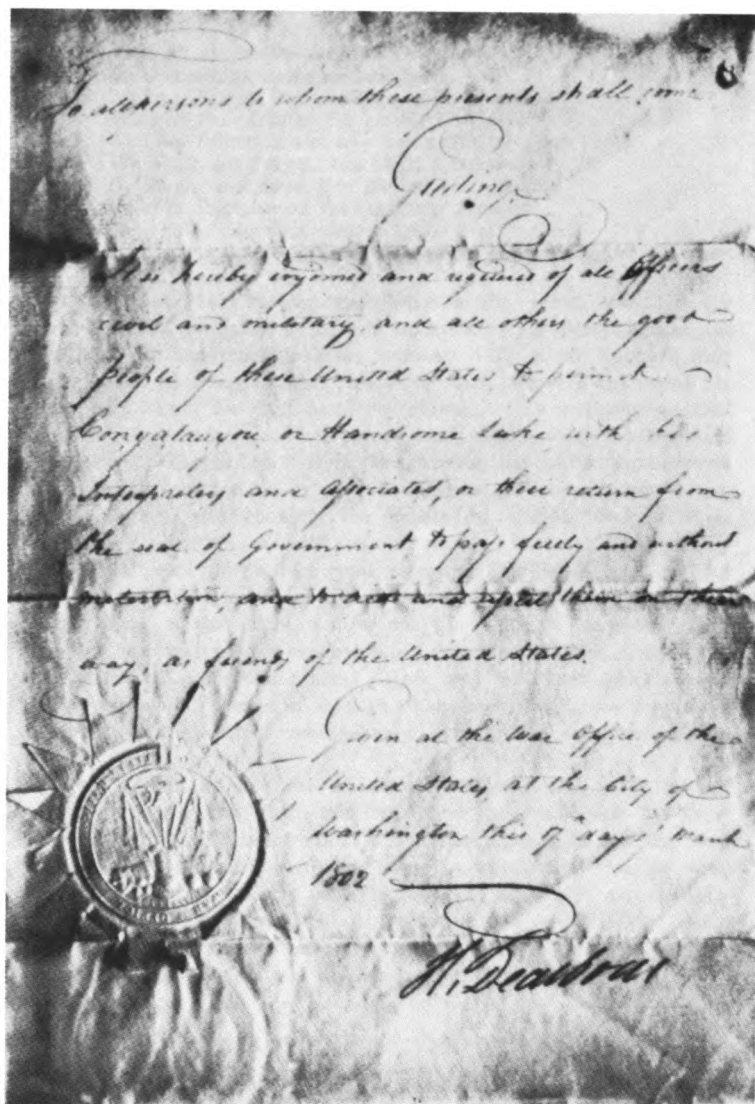 To all persons to whom these presents shall come
Greeting,
It is hereby enjoined and required of all Officers
civil and military, and all others the good
people of these United States to permit
or Handsome Lake with his
Interpreters and Associates, on their return from
the seat of Government to pass freely and without
molestation, and to and them on their
way, as friends of the United States.
Given at the War Office of the
United States, at the City of
Washington this day of March
1802
H. Dearborn